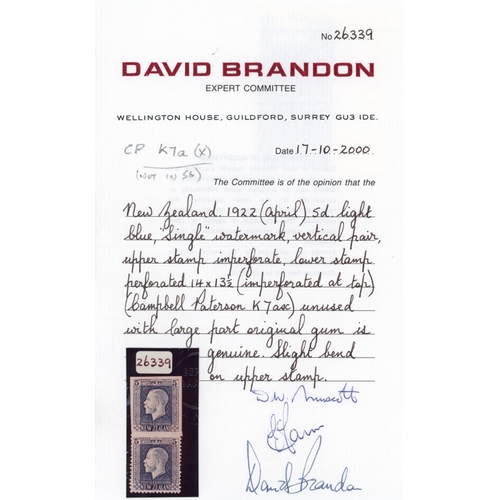 No 26339
DAVID BRANDON
EXPERT COMMITTEE
WELLINGTON HOUSE, GUILDFORD, SURREY GU3 IDE.
CP K7a (x)
(NOT IN SG)
Date 17-10-2000.
The Committee is of the opinion that the
New Zealand. 1922 (April) 5d. light
blue, "Single" watermark, vertical pair,
upper stamp imperforate, lower stamp
perforated 14 x 13½ (imperforated at top)
(Campbell Paterson K7ax) unused
with large part original gum is
genuine. Slight bend
on upper stamp.
26339
5 5
NEW ZEALAND
5 5
NEW ZEALAND
David Brandon